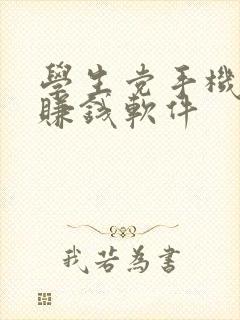 學生党手機
賺錢軟件
我若為書